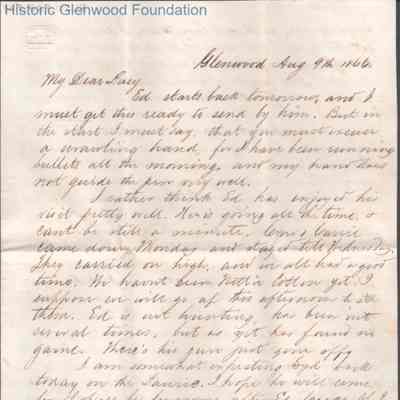 Historic Glenwood Foundation
Glenwood Aug 9th 1866
My Dear Lucy
Ed starts back tomorrow, and I
must get this ready to send by him. But in
the start I must say, that you must excuse
a scrawling hand, for I have been running
bullets all the morning, and my hand does
not guide the pen very well.
I rather think Ed has enjoyed his
visit pretty well. He is going all the time, &
cant be still a minute. Carrie
came down Monday and stayed till Wednesday.
They carried on high, and in all had a good
time. We havnt been yet. I
suppose we will go up this afternoon to see
them. Ed is out hunting, has been out
several times, but as yet has found no
game. There's his gun just gone off
I am somewhat expecting back
today on the I hope he will come